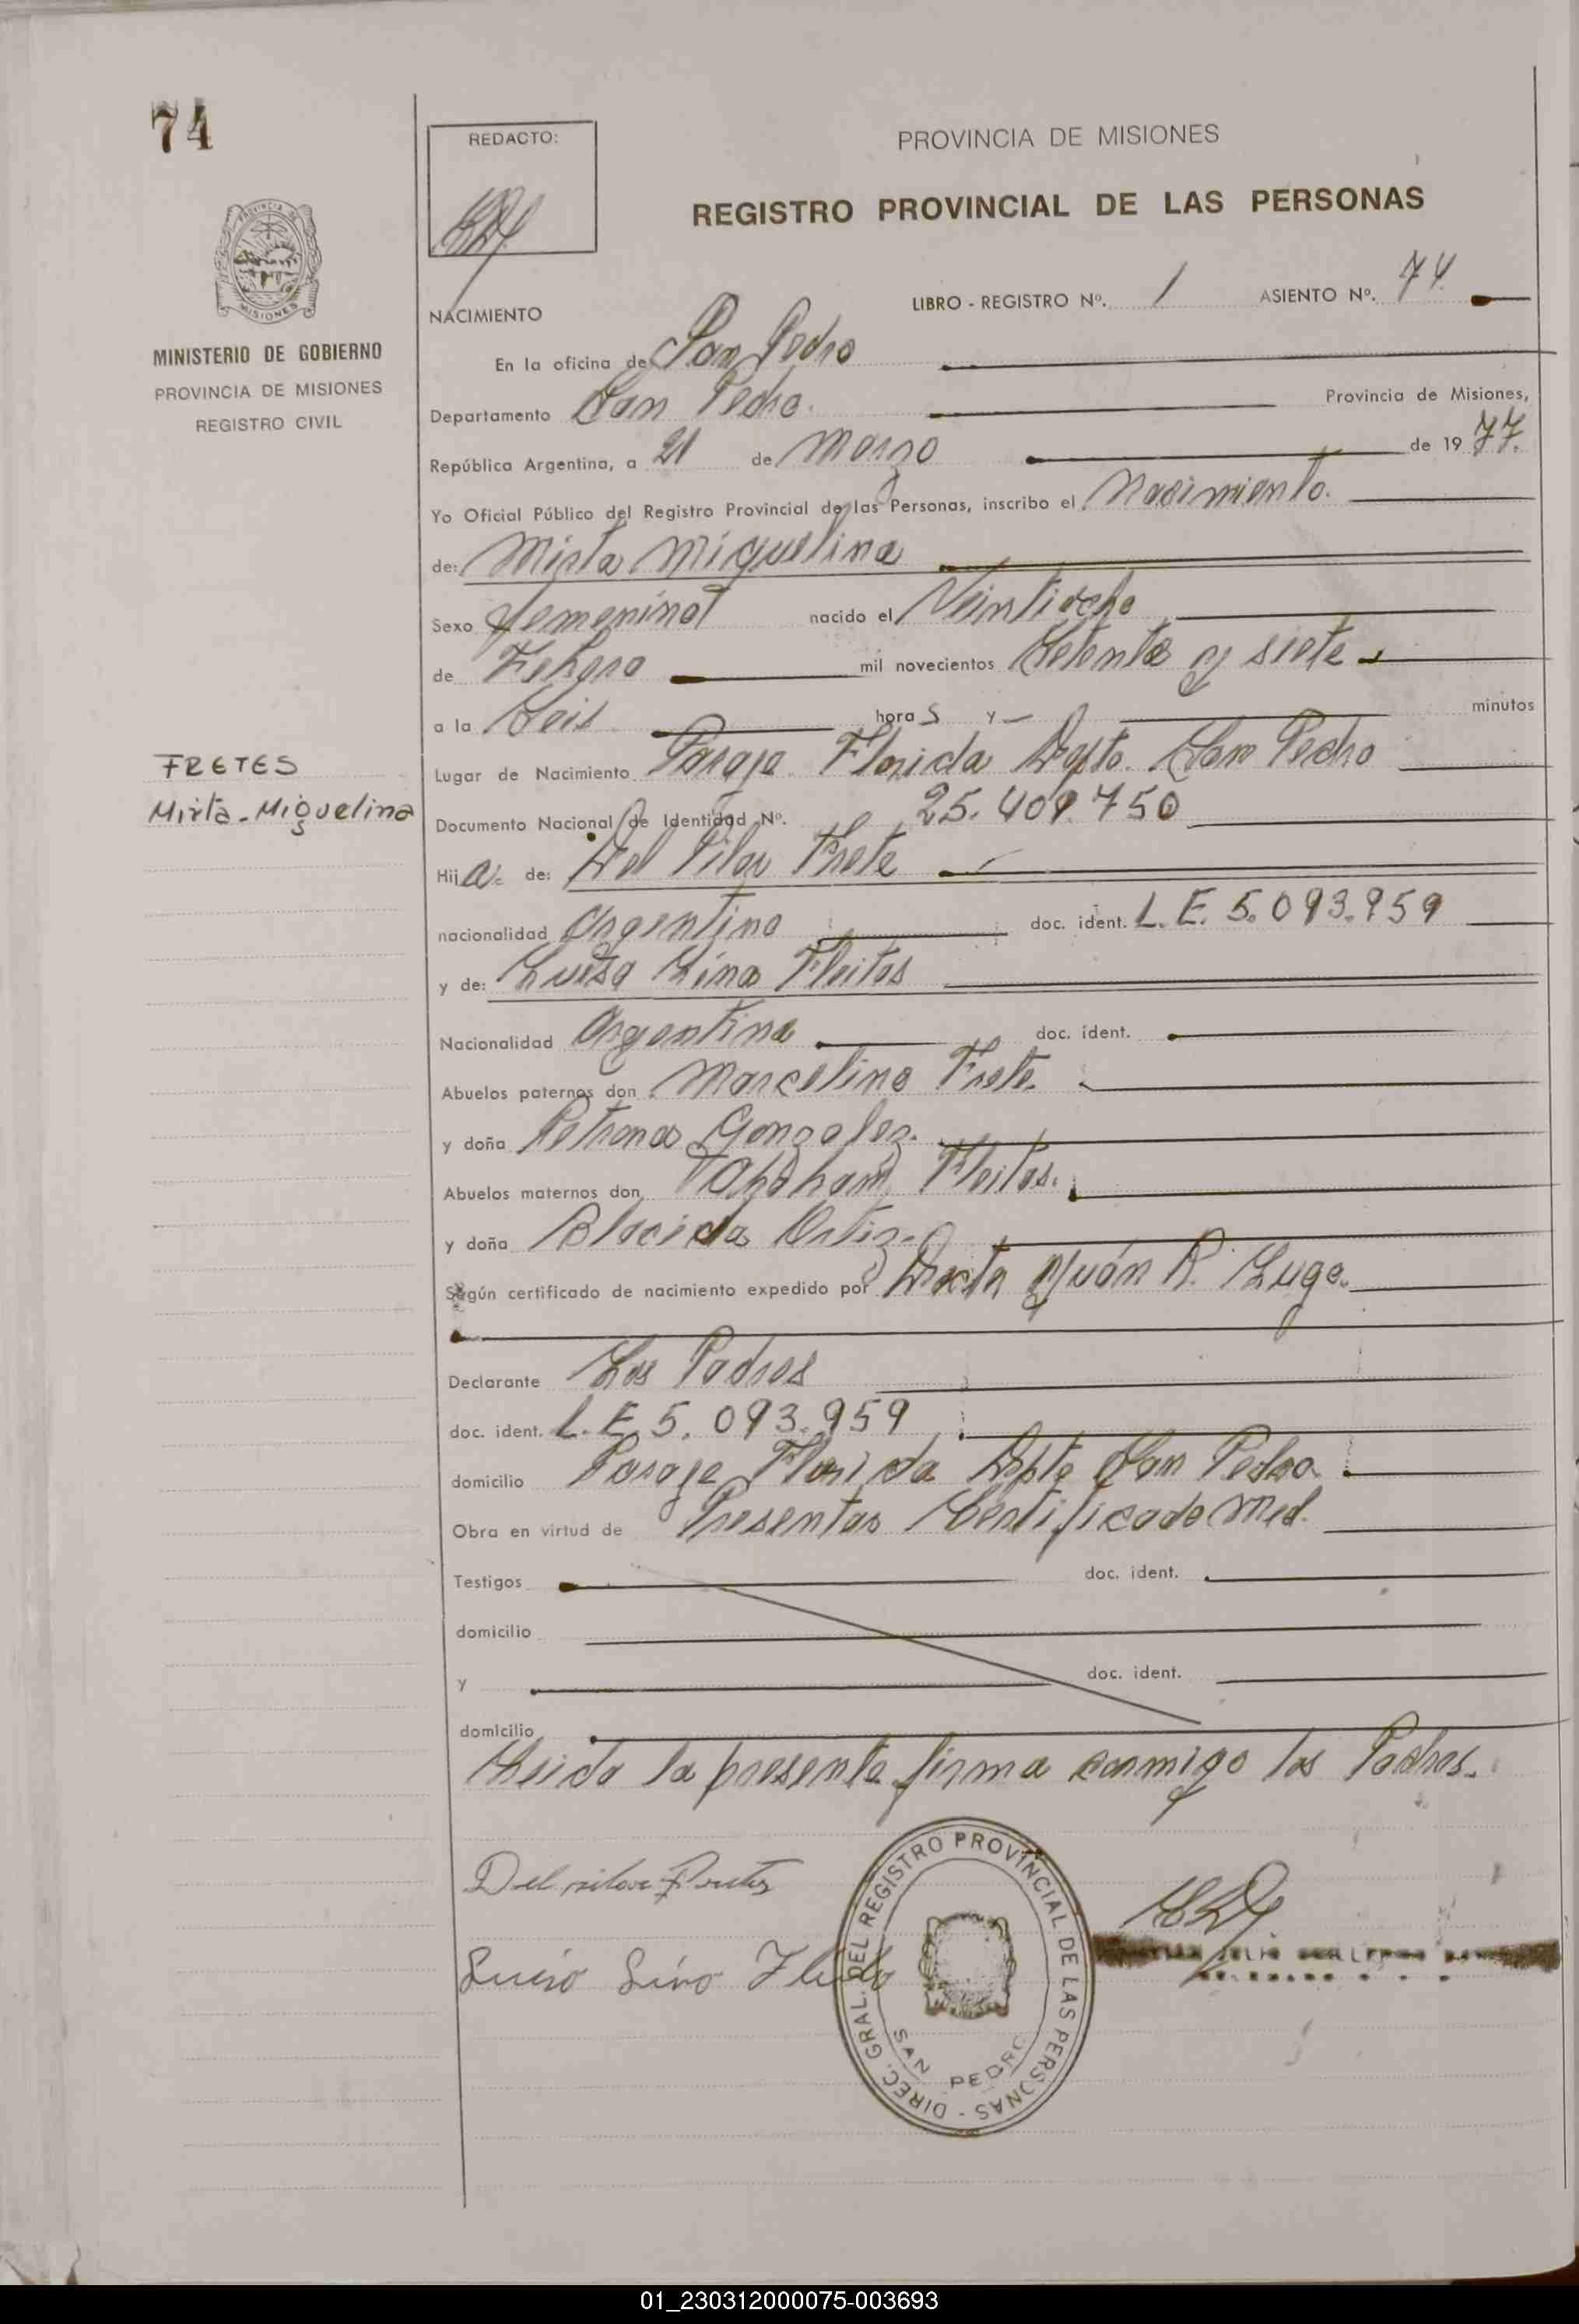 74
REDACTO:
PROVINCIA DE MISIONES
REGISTRO PROVINCIAL DE LAS PERSONAS
MISIONES
MINISTERIO DE GOBIERNO
PROVINCIA DE MISIONES
REGISTRO CIVIL
LIBRO - REGISTRO Nº. 1 ASIENTO Nº. 74
NACIMIENTO
En la oficina de San Pedro
Departamento San Pedro. Provincia de Misiones,
República Argentina, a 21 de Marzo de 1977.
Yo Oficial Público del Registro Provincial de las Personas, inscribo el Nacimiento.
de: Mirta Miguelina
Sexo femenino nacido el Veintiocho
de Febrero mil novecientos Setenta y siete
a la Seis horas y — minutos
FRETES
Mirta - Miguelina
Lugar de Nacimiento Paraje Florida Dpto. San Pedro
Documento Nacional de Identidad Nº. 25.409.750
Hija de: Del Pilar Frete
nacionalidad Argentino doc. ident. L.E. 5.093.959
y de: Luisa Lina Fleitas
Nacionalidad Argentina doc. ident.
Abuelos paternos don Marcelino Frete.
y doña Petrona Gonzalez.
Abuelos maternos don Abraham Fleitas.
y doña Blacida Ortiz.
Según certificado de nacimiento expedido por Juán R. Lugo.
Declarante Los Padres
doc. ident. L.E. 5.093.959
domicilio Paraje Florida Dpto San Pedro.
Obra en virtud de Presentar Certificado Med.
Testigos doc. ident.
domicilio
y doc. ident.
domicilio
Leida la presente firma conmigo los Padres.
Del pilar Fretes
DIREC. GRAL. DEL REGISTRO PROVINCIAL DE LAS PERSONAS -
SAN PEDRO
01_230312000075-003693